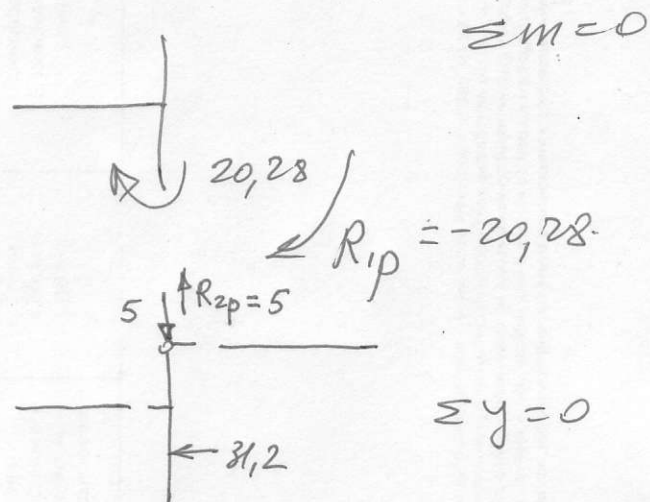 Σm=0
20,28
R1p = -20,28.
5 R2p=5
Σy=0
31,2